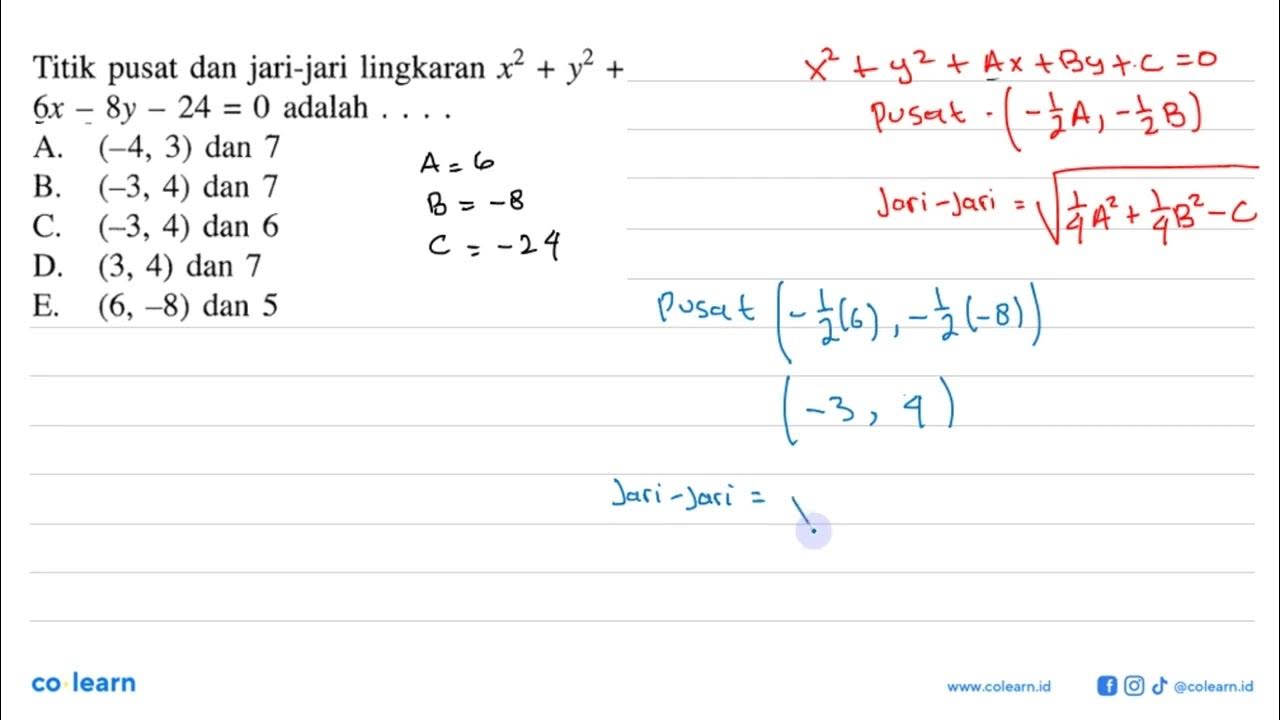 Titik pusat dan jari-jari lingkaran x² + y² +
6x − 8y − 24 = 0 adalah . . . .
A. (−4, 3) dan 7
B. (−3, 4) dan 7
C. (−3, 4) dan 6
D. (3, 4) dan 7
E. (6, −8) dan 5
A = 6
B = -8
C = -24
x² + y² + Ax + By + C = 0
Pusat · (-1/2 A, -1/2 B)
Jari-Jari = √(1/4 A² + 1/4 B² - C)
Pusat (-1/2(6), -1/2(-8))
(-3, 4)
Jari-Jari =
co·learn
www.colearn.id
@colearn.id